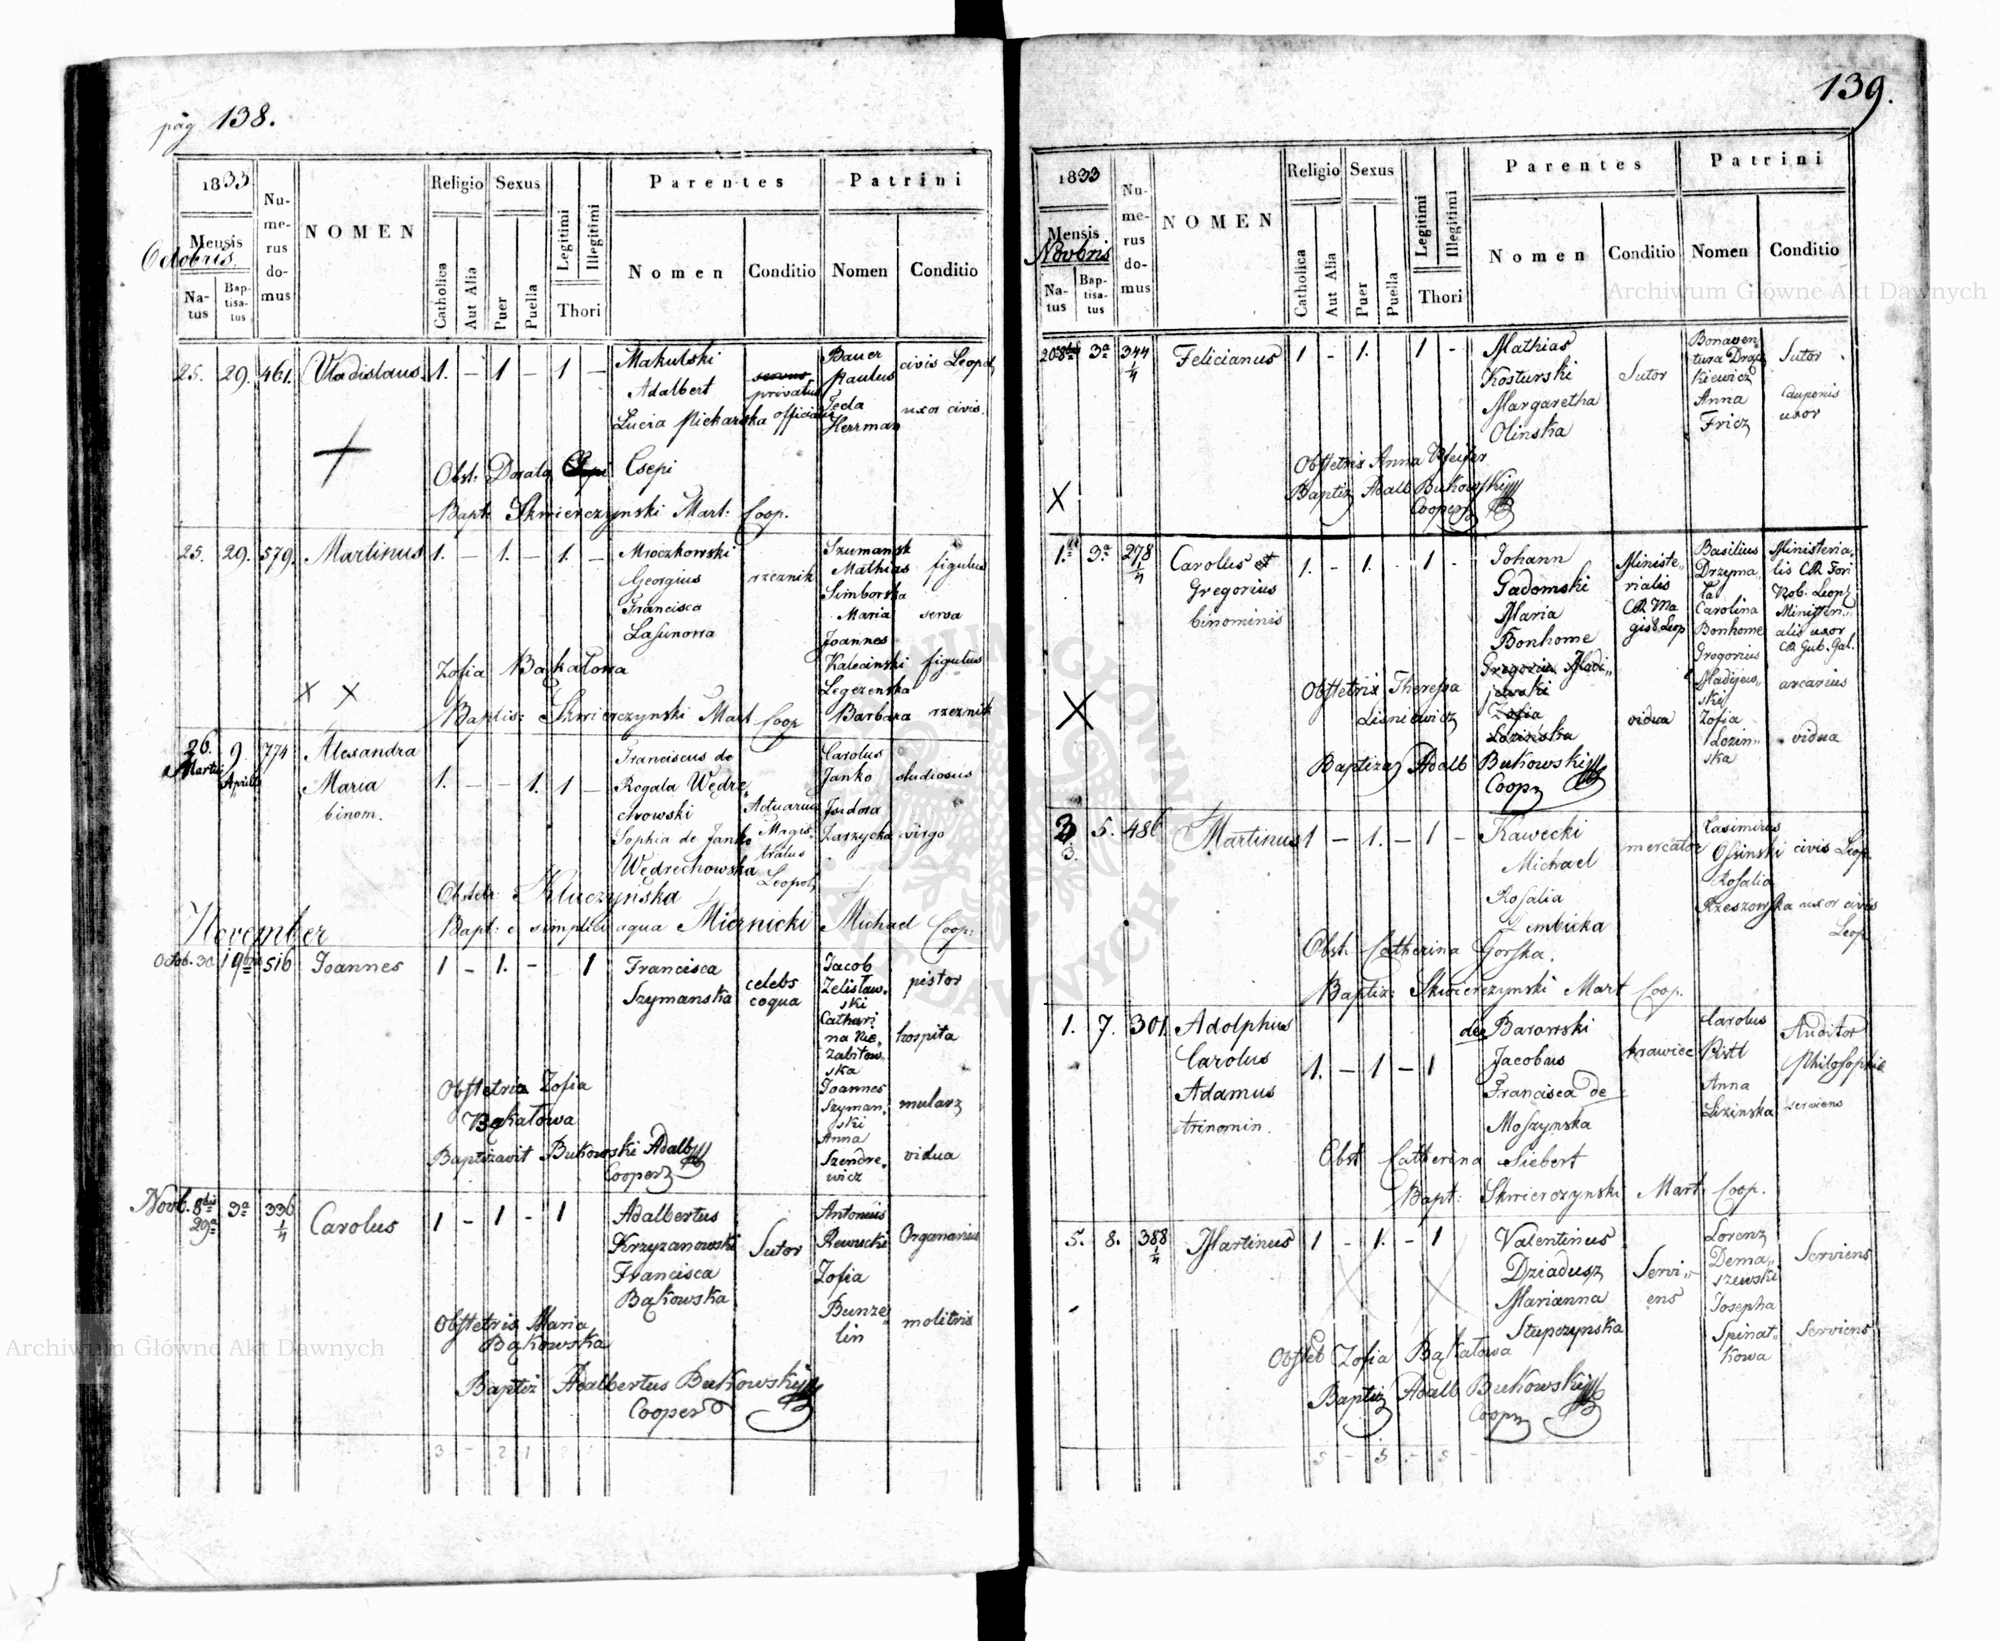 pag 138.
1833
Mensis
Octobris.
Natus
Baptisatus
Numerus domus
NOMEN
Religio
Catholica
Aut Alia
Sexus
Puer
Puella
Legitimi
Illegitimi
Thori
Parentes
Nomen
Conditio
Patrini
Nomen
Conditio
25. 29. 461. Vladislaus 1. – 1 – 1 –
Makulski
Adalbert
Lucia Piekarska
privatus
officialis
Bauer
Paulus
civis Leopol
Tecla
Herrman
uxor civis.
Obst: Dorata Csepi
Bapt: Skwierczynski Mart: Coop.
25. 29. 579. Martinus 1. – 1. – 1. –
Mroczkowski
Georgius
Francisca
Lasunowa
rzeznik
Szumansk
Mathias
figulus
Simborska
Maria
serva
Joannes
Kalecinski
figulus
Legezenska
Barbara
rzeznik
Zofia Bąkałowa
Baptis: Skwierczynski Mart Coop
26. Martii 9. Aprilis 774 Alexandra
Maria
binom.
1. – – 1. 1 –
Franciscus de
Rogala Wędre
chowski
Sophia de Janko
Wędrechowska
Actuarius
Magis
tratus
Leopol
Carolus
Janko
studiosus
Isidora
Jarzycka
virgo
Obstetr: Kluczyńska
Bapt: e simplici aqua Miernicki Michael Coop:
November
Octob. 30. 516 Joannes 1 – 1. – 1
Francisca
Szymanska
celebs
coqua
Jacob
Zelisław.
ski
pistor
Cathari
na Nie.
zabitow.
ska
hospita
Joannes
Szyman.
ski
mularz
Anna
Szendre.
wicz
vidua
Obstetrix Zofia
Bąkałowa
Baptizavit Bukowski Adalb
Cooper
Novb. 8bris 29a 3a 336 1/4 Carolus 1 – 1 – 1
Adalbertus
Krzyzanowski
Francisca
Bąkowska
Sutor
Antonius
Rewucki
Organarius
Zofia
Bunze
lin
molitrix
Obstetrix Maria
Bąkowska
Baptiz Adalbertus Bukowski
Cooper
3 – 2 1 2 1
139.
1833
Mensis
Novbris
Natus
Baptisatus
Numerus domus
NOMEN
Religio
Catholica
Aut Alia
Sexus
Puer
Puella
Legitimi
Illegitimi
Thori
Parentes
Nomen
Conditio
Patrini
Nomen
Conditio
20 8bris 3a 344 1/4 Felicianus 1 – 1. 1 –
Mathias
Kosturski
Margaretha
Olinska
Sutor
Bonaven-
tura Droz
kiewicz
Sutor
Anna
Fricz
Cauponis
uxor
Obstetrix Anna Pfeifer
Baptiz Adalb Bukowski
Cooper
1. 3a 278 1/4 Carolus et
Gregorius
binominis
1. – 1. 1 –
Johann
Gadomski
Maria
Bonhome
Ministe-
rialis
CR Ma
gist Leop
Basilius
Drzyma
ła
Ministeria.
lis CR Fori
Nob. Leopl
Carolina
Bonhome
Ministeri
alis uxor
CR Gub. Gal.
Gregorius
Madijews
ki
arcarius
Zofia
Lozin
ska
vidua
Zofia
Lozinska
vidua
Obstetrix Theressa
Lisniewicz
Baptiza Adalb Bukowski
Coop
3 5. 486 Martinus 1 – 1. – 1 –
3.
Kawecki
Michael
Rosalia
Dembicka
mercator
Casimirus
Ossinski
civis Leop.
Rosalia
Rzeszowska
uxor civis
Leop
Obst: Catherina Gorska.
Baptiz: Skwierczynski Mart Coop.
1. 7. 301. Adolphus
Carolus
Adamus
trinomin.
1. – 1 – 1
de Barowski
Jacobus
Francisca de
Moszynska
krawiec
Carolus
Pistl
Auditor
Philosophie
Anna
Lizinska
serviens
Obst Catherina Siebert
Bapt: Skwierczynski Mart. Coop.
5. 8. 388 1/4 Martinus 1 – 1. – 1
Valentinus
Dziadusz
Marianna
Stupczynska
Servi
ens
Lorenz
Dema
szewski
Serviens
Josepha
Spinat
kowa
Serviens
Obstet Zofia Bąkałowa
Baptiz Adalb Bukowski
Coop
5 – 5 – 5 –
Archiwum Główne Akt Dawnych
Archiwum Główne Akt Dawnych